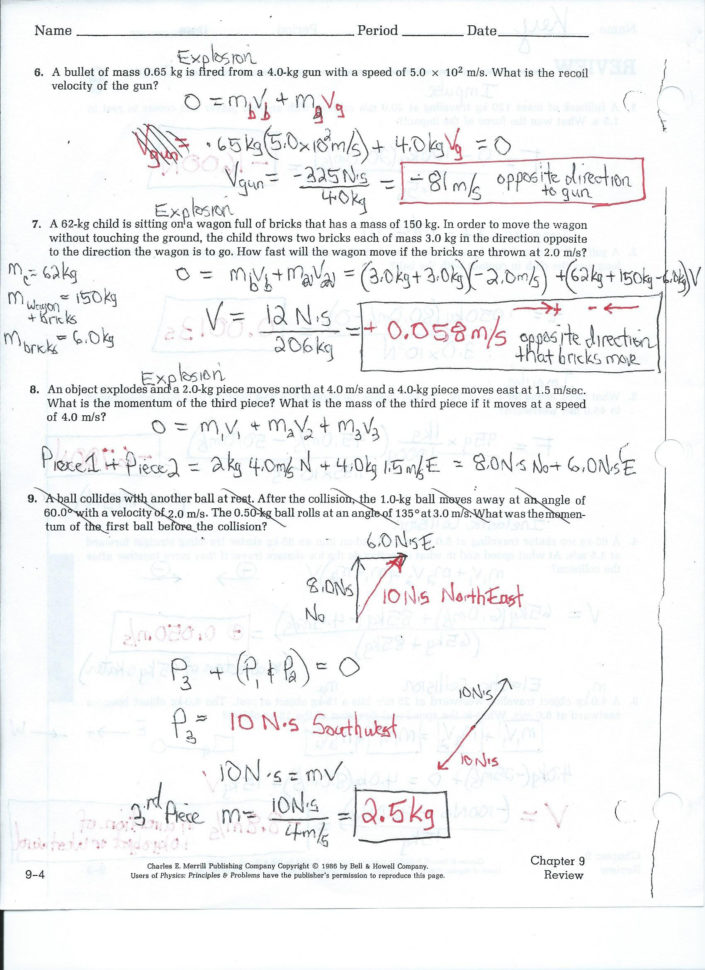 Name Period Date
Explosion
6. A bullet of mass 0.65 kg is fired from a 4.0-kg gun with a speed of 5.0 × 10² m/s. What is the recoil
velocity of the gun?
0 = m_b V_b + m_g V_g
V_gun = .65 kg (5.0×10² m/s) + 4.0 kg V_g = 0
V_gun = -325 N·s / 4.0kg = -81 m/s opposite direction
to gun
Explosion
7. A 62-kg child is sitting on a wagon full of bricks that has a mass of 150 kg. In order to move the wagon
without touching the ground, the child throws two bricks each of mass 3.0 kg in the direction opposite
to the direction the wagon is to go. How fast will the wagon move if the bricks are thrown at 2.0 m/s?
m_c = 62kg
0 = m_b V_b + m_w V_w = (3.0kg + 3.0kg)(-2.0m/s) + (62kg + 150kg - 6.0kg)V
m wagon = 150kg
+ bricks
m bricks = 6.0kg
V = 12 N·s / 206kg = + 0.058 m/s opposite direction
that bricks move
→+ -←
Explosion
8. An object explodes and a 2.0-kg piece moves north at 4.0 m/s and a 4.0-kg piece moves east at 1.5 m/sec.
What is the momentum of the third piece? What is the mass of the third piece if it moves at a speed
of 4.0 m/s?
0 = m₁V₁ + m₂V₂ + m₃V₃
Piece1 + Piece2 = 2kg 4.0m/s N + 4.0kg 1.5m/s E = 8.0N·s No + 6.0N·s E
9. A ball collides with another ball at rest. After the collision, the 1.0-kg ball moves away at an angle of
60.0° with a velocity of 2.0 m/s. The 0.50-kg ball rolls at an angle of 135° at 3.0 m/s. What was the momen-
tum of the first ball before the collision?
6.0N·s E.
8.0Ns
No
10 N·s NorthEast
P₃ + (P₁ & P₂) = 0
10N·s
P₃ = 10 N·s Southwest
10 N·s
10N·s = mV
3rd Piece m = 10N·s / 4m/s = 2.5kg
Charles E. Merrill Publishing Company Copyright © 1986 by Bell & Howell Company.
Users of Physics: Principles & Problems have the publisher's permission to reproduce this page.
9-4
Chapter 9
Review